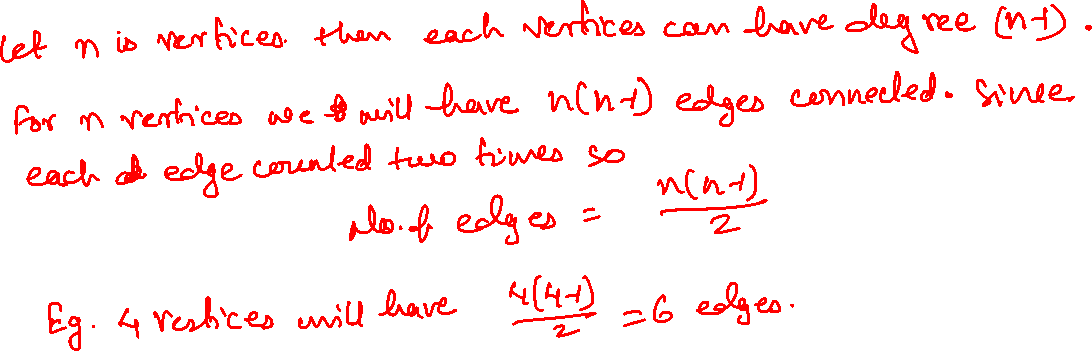 Let n is vertices then each vertices can have degree (n-1).
for n vertices we will have n(n-1) edges connected. Since
each edge counted two times so
No. of edges = n(n-1)/2
Eg. 4 vertices will have 4(4-1)/2 = 6 edges.